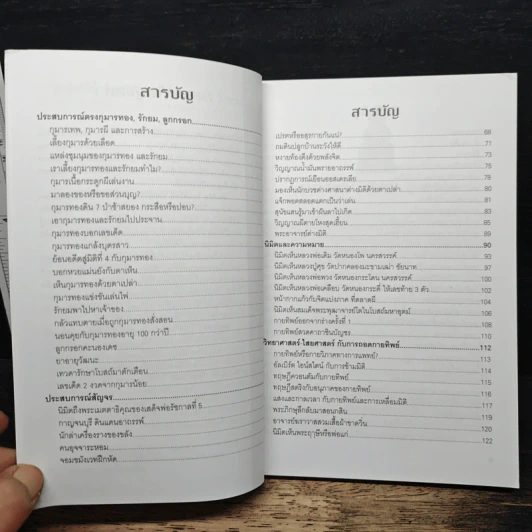 สารบัญ
ประสบการณ์ตรงกุมารทอง, รักยม, ลูกกรอก
กุมารเทพ, กุมารผี และการสร้าง
เลี้ยงกุมารด้วยเลือด
แหล่งชุมนุมของกุมารทอง และรักยม
เราเลี้ยงกุมารทองและรักยมทำไม
กุมารเนื้อกระดูกผีเล่นงาน
มาลองของหรือขอส่วนบุญ?
กุมารทองดิน 7 ป่าช้าสยอง กระสือหรือปอบ?
เอากุมารทองและรักยมไปประจาน
กุมารทองบอกเลขเด็ด
กุมารทองแกล้งบุตรสาว
ย้อนอดีตสู่มิติที่ 4 กับกุมารทอง
บอกหวยแม่นยังกับตาเห็น
เห็นกุมารทองด้วยตาเปล่า
กุมารทองแข่งขันเล่นไฟ
รักยมพาไปหาเจ้าของ
กลัวแทบตายเมื่อถูกกุมารทองสั่งสอน
นอนคุยกับกุมารทองอายุ 100 กว่าปี
ลูกกรอกคะนองเดช
ยาอายุวัฒนะ
เทวดารักษาโบสถ์มาตักเตือน
เลขเด็ด 2 งวดจากกุมารน้อย
ประสบการณ์สัญจร
นิมิตถึงพระเมตตาธิคุณของเสด็จพ่อรัชกาลที่ 5
กาญจนบุรี ดินแดนอาถรรพ์
นักล่าเครื่องรางของขลัง
คนอุจจาระหอม
จอมขมังเวทฝึกหัด
สารบัญ
เปรตหรืออสุรกายกันแน่? 68
ถมดินปลูกบ้านระวังให้ดี 71
หงายท้องตึงด้วยพลังจิต 73
วิญญาณน้ำมันพรายอาวรณ์ 75
ปรากฏการณ์เยือนออสเตรเลีย
มองเห็นนักบวชต่างศาสนาต่างมิติด้วยตาเปล่า
แจ็กพอตสลอตแตกเป็นว่าเล่น
สุนัขแสนรู้มาเข้าฝันลาไปเกิด
วิญญาณผีตายโหงสุดเฮี้ยน
พระอาจารย์ต่างมิติ
นิมิตและความหมาย 90
นิมิตเห็นหลวงพ่อเดิม วัดหนองโพ นครสวรรค์ 92
นิมิตเห็นหลวงปู่ศุข วัดปากคลองมะขามเฒ่า ชัยนาท 93
นิมิตเห็นหลวงพ่อพวง วัดหนองกระโดน นครสวรรค์
นิมิตเห็นหลวงพ่อเคลือบ วัดหนองกระดี่ ให้เลขท้าย 3 ตัว
หน้ากากแก้วกับจิตแบ่งภาค ที่ตลาดผี
นิมิตเห็นสมเด็จพระพุฒาจารย์โตในโบสถ์มหาอุตม์
กายทิพย์ออกจากร่างครั้งที่ 1
กายทิพย์สวดคาถาชินบัญชร
วิทยาศาสตร์-ไสยศาสตร์ กับการถอดกายทิพย์ 112
กายทิพย์หรือกายวิภาคทางการแพทย์?
อัลเบิร์ต ไอน์สไตน์ กับการข้ามมิติ
ทฤษฎีควอนตัมกับกายทิพย์
ทฤษฎีสตริงกับอนุภาคของกายทิพย์
แสงและกาลเวลา กับกายทิพย์และการเหลื่อมมิติ
พระภิกษุลึกลับมาสอนกสิณ
อาจารย์ฆราวาสสวมเสื้อผ้าขาดวิ่น
นิมิตเห็นพระฤๅษีหรือพ่อแก่ 122